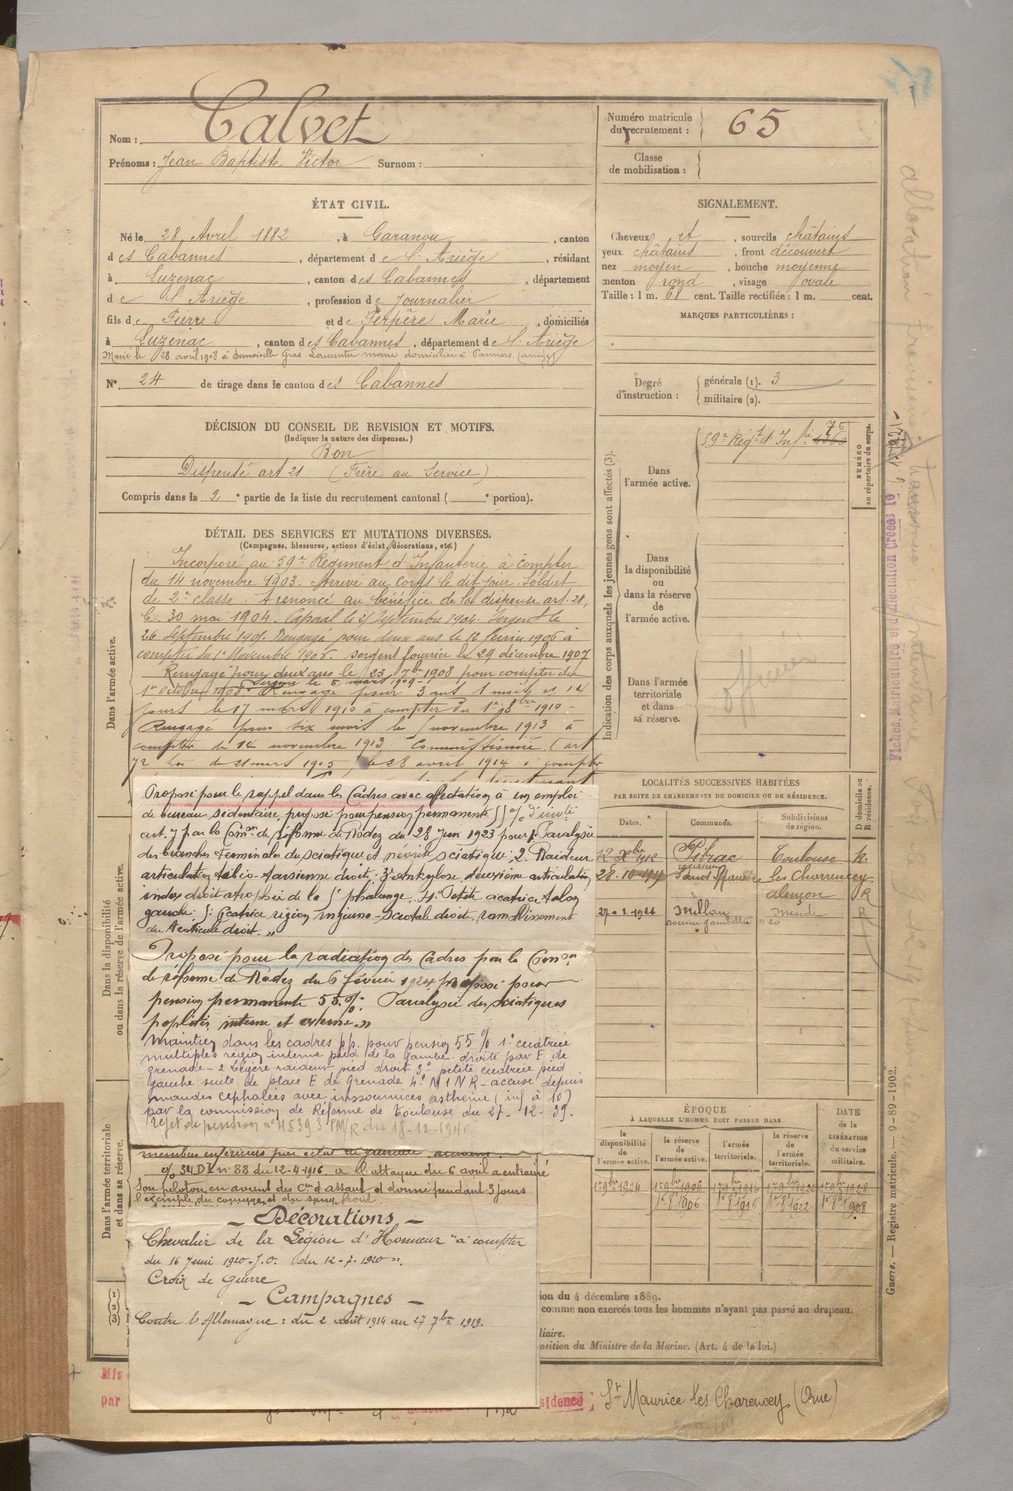 Nom : Calvet
Prénoms : Jean Baptiste Victor Surnom :
Numéro matricule
du recrutement : 65
Classe
de mobilisation :
ÉTAT CIVIL.
Né le 28 Avril 1882, à Garanou, canton
des Cabannes, département de l'Ariège, résidant
à Luzenac, canton des Cabannes, département
de l'Ariège, profession de Journalier
fils de Pierre et de Perpère Marie, domiciliés
à Luzenac, canton des Cabannes, département de l'Ariège
Marié le 28 avril 1908 à Demoiselle Gras Laurentine Marie domiciliée à Pamiers (Ariège)
N° 24 de tirage dans le canton des Cabannes
SIGNALEMENT.
Cheveux et, sourcils châtains
yeux châtains, front découvert
nez moyen, bouche moyenne
menton rond, visage ovale
Taille : 1 m. 61 cent. Taille rectifiée : 1 m. cent.
MARQUES PARTICULIÈRES :
Degré
d'instruction :
générale (1). 3
militaire (2).
DÉCISION DU CONSEIL DE REVISION ET MOTIFS.
(Indiquer la nature des dispenses.)
Bon
Dispensé art 21 (Frère au Service)
Compris dans la 2e partie de la liste du recrutement cantonal ( e portion).
DÉTAIL DES SERVICES ET MUTATIONS DIVERSES.
(Campagnes, blessures, actions d'éclat, décorations, etc.)
Dans l'armée active.
Incorporé au 59e Régiment d'Infanterie à compter
du 14 novembre 1903. Arrivé au corps le dit jour. Soldat
de 2e classe. A renoncé au bénéfice de la dispense art. 21,
le 30 mai 1904. Caporal le Septembre 1904. Sergent le
26 Septembre 1905. Rengagé pour deux ans le 12 février 1906 à
compter du 1er Novembre 1906. sergent fourrier le 29 décembre 1907
Rengagé pour deux ans le 23 7bre 1908 pour compter du
1er octobre 1908. Sergent le 5 mars 1909. Rengagé pour 3 ans 1 mois et 14
jours le 17 mars 1910 à compter du 1er 8bre 1910.
Rengagé pour six mois le novembre 1913 à
compter le 14 novembre 1913. Commissionné (art
72 Loi du 21 mars 1905) le 28 avril 1914 à compter
Indication des corps auxquels les jeunes gens sont affectés (3).
Dans
l'armée active.
59e Régt d'Infie
NUMÉRO
au répertoire du corps.
Dans
la disponibilité
ou
dans la réserve
de
l'armée active.
Dans l'armée
territoriale
et dans
sa réserve.
officier
Proposé pour le rappel dans les Cadres avec affectation à un emploi
de bureau sédentaire, proposé pour pension permanente 55 % d'invté
art. 7 par la Comon de réforme de Rodez du 28 Juin 1923 pour 1. Paralysie
des branches terminales du sciatique et névrite sciatique. 2. Raideur
articulation tibio-tarsienne droit. 3. Ankylose deuxième articulation
index droit atrophie de la 3e phalange. 4. Petite cicatrice talon
gauche. 5. Cicatrice région inguino-scrotale droit, ramollissement
du testicule droit. »
Proposé pour la radiation des Cadres par la Comon
de réforme de Rodez du 6 février 1924 proposé pour
pension permanente 55 %. Paralysie des sciatiques
poplités interne et externe. »
Maintien dans les cadres pp. pour pension 55 % 1° cicatrice
multiples région interne pied de la jambe droite par E. de
grenade - 2 légère raideur pied droit 3° petite cicatrice pied
gauche suite de plaie E de grenade 4° N I N R - accuse depuis
maudes cephalées avec inssoumices asthénie (inf à 10)
par la commission de Réforme de Toulouse du 27-12-39.
rejet de pension n° 48393 PM/R du 18-12-1940.
Dans la disponibilité
ou dans la réserve de l'armée active.
Dans l'armée territoriale
et dans sa réserve.
membres inférieurs par éclat de grenade
o/o 34 DI n° 88 du 12-4-1916 à l'attaque du 6 avril a entraîné
son peloton en avant des Cies d'assaut et donné pendant 3 jours
l'exemple du courage et du sang froid.
Décorations
Chevalier de la Légion d'Honneur "à compter
du 16 Juin 1920 - J.O. du 12-7-1920".
Croix de guerre
Campagnes
Contre l'Allemagne : du 2 août 1914 au 27 7bre 1919.
LOCALITÉS SUCCESSIVES HABITÉES
PAR SUITE DE CHANGEMENTS DE DOMICILE OU DE RÉSIDENCE.
Dates. Communes. Subdivisions
de région. D domicile ou
R résidence.
Pibrac Toulouse R.
Saint Maurice les Charencey
Alençon R
27-2-1926 Millau Mende R
avenue gambetta n° 20
ÉPOQUE
À LAQUELLE L'HOMME DOIT PASSER DANS
DATE
de la
LIBÉRATION
du service
militaire.
la
disponibilité
de
l'armée active.
la réserve
de
l'armée active.
l'armée
territoriale.
la réserve
de
l'armée
territoriale.
1 9bre 1904 1 9bre 1906 1 9bre 1916 1 9bre 1922 1 9bre 1928
1er 8bre 1906 1er 8bre 1916 1er 8bre 1922 1er 8bre 1928
(1)
(2)
(3)
ion du 4 décembre 1889.
comme non exercés tous les hommes n'ayant pas passé au drapeau.
liaire.
osition du Ministre de la Marine. (Art. 4 de la loi.)
Mis
par
sidence
St Maurice les Charencey (Orne)
Guerre. — Registre matricule. — 9-89-1902.